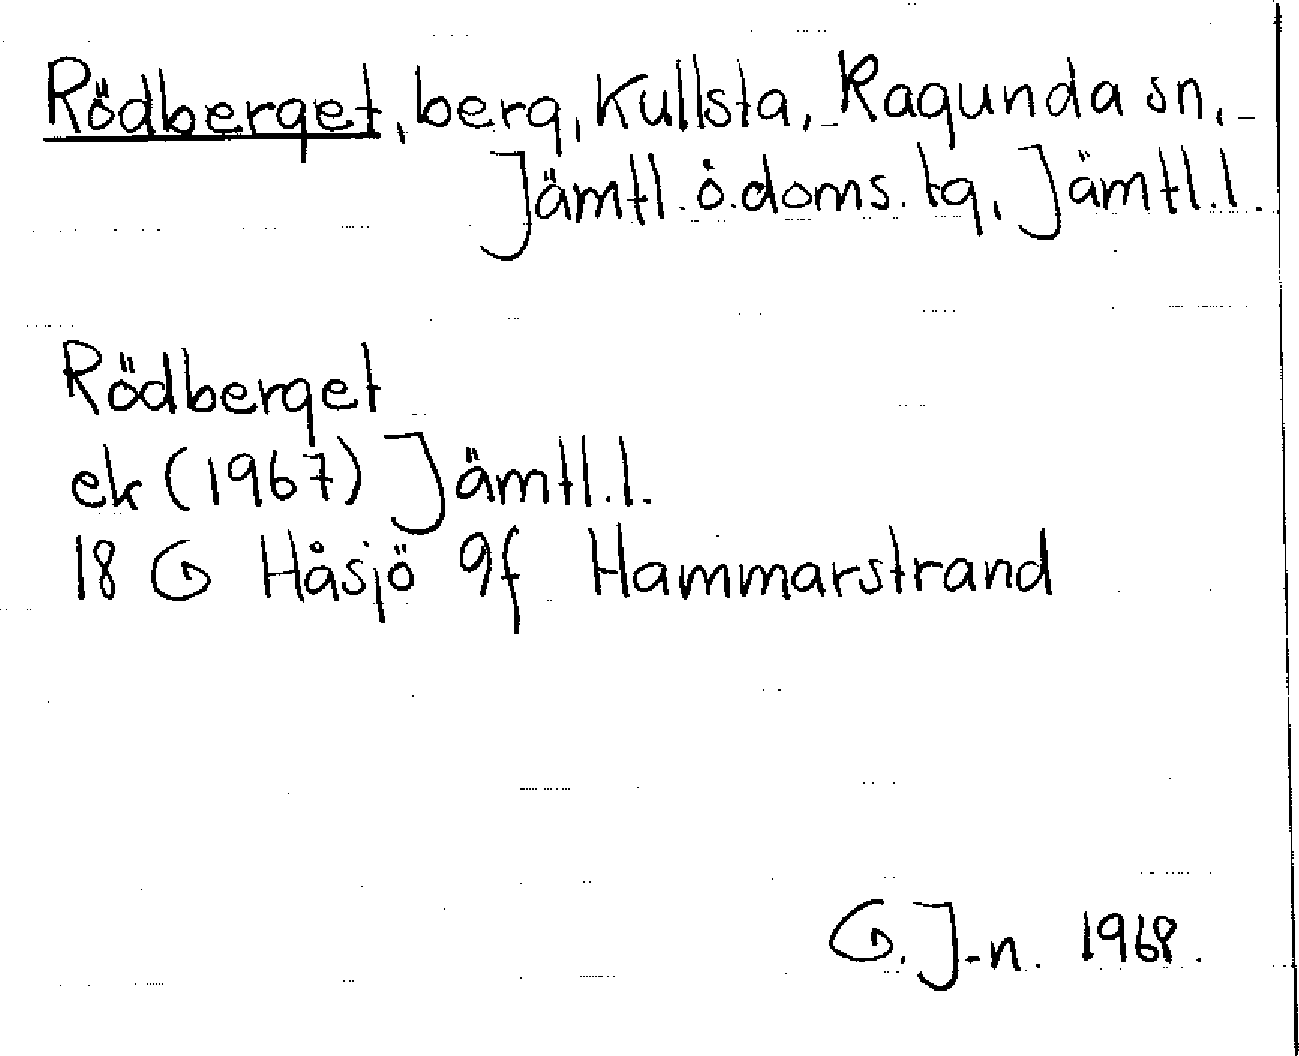 Rödberget, berg, Kullsta, Ragunda sn,
Jämtl. ö. doms. tg, Jämtl. l.
Rödberget
ek (1967) Jämtl. l.
18 G Håsjö 9f Hammarstrand
G. J-n. 1968.